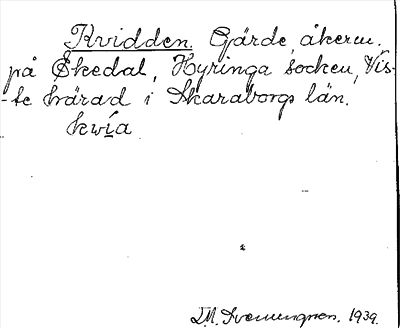 Kvidden. Gärde, åkerm.
på Ökedal, Hyringa socken, Vis-
-te härad i Skaraborgs län.
kvía
1939.